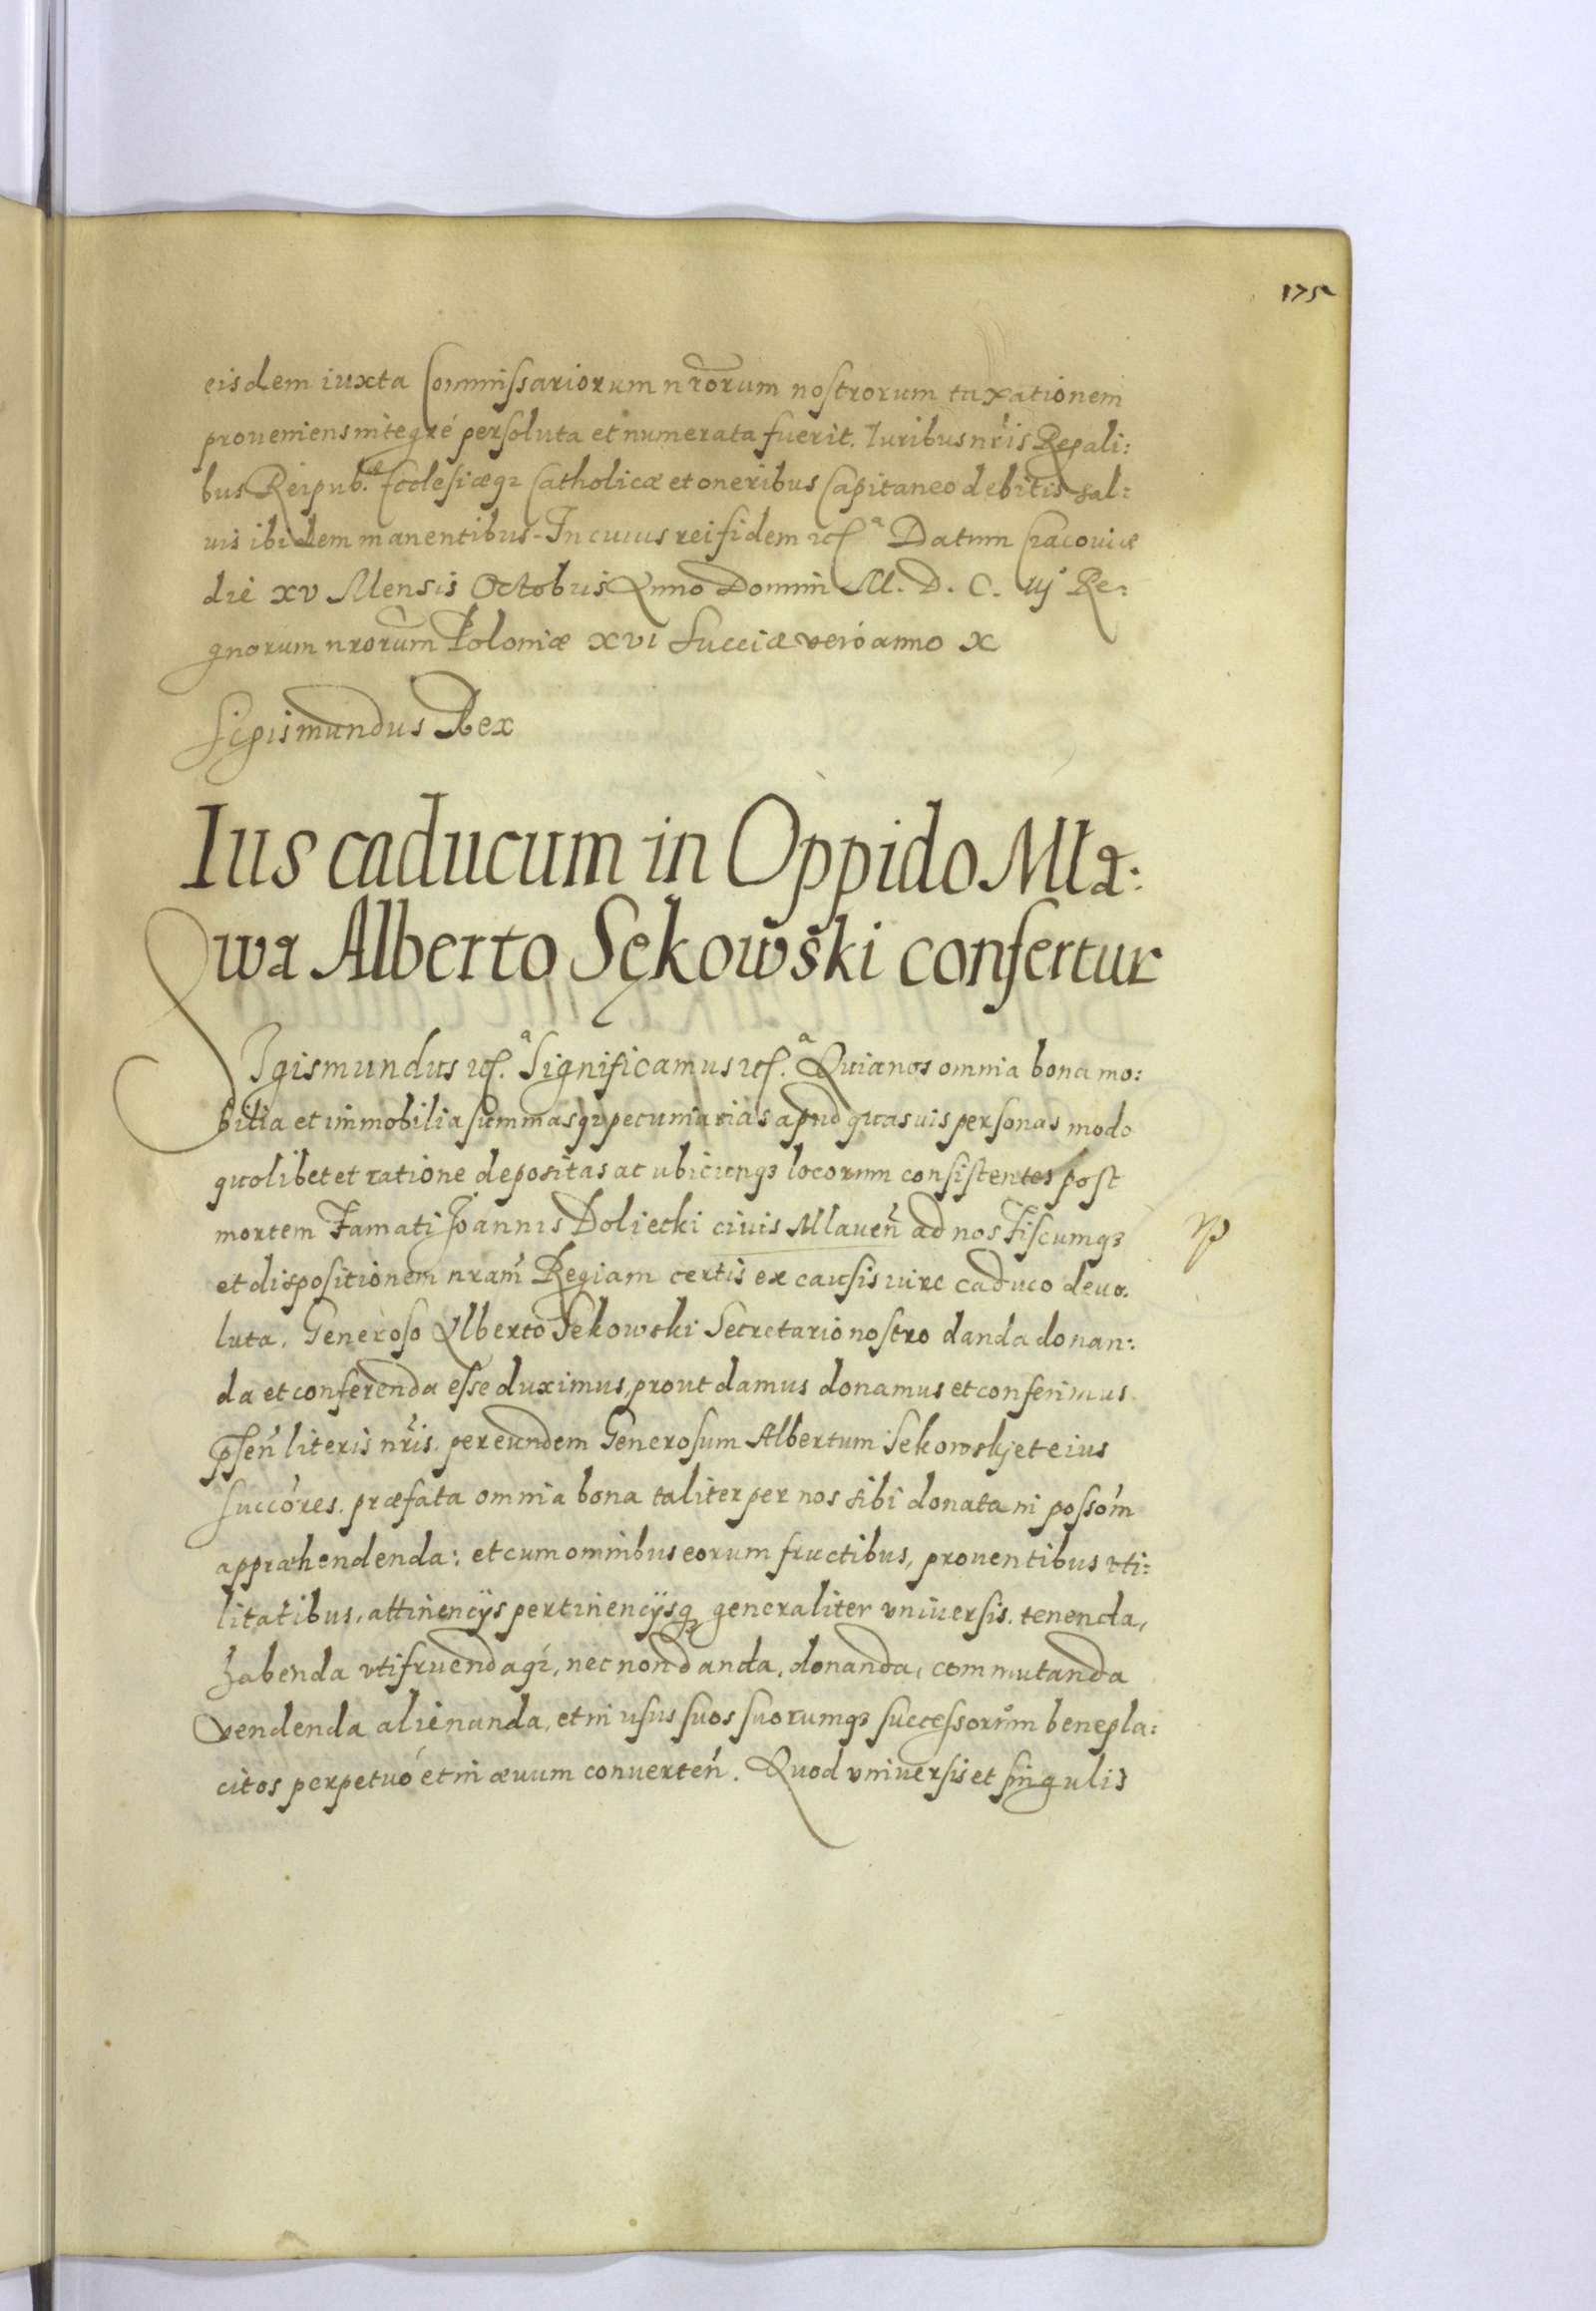 175
eisdem iuxta Commissariorum nrorum nostrorum taxationem
proueniens integré persoluta et numerata fuerit. Iuribus nris Regali:
bus Reipub. Ecclesiæqз Catholicæ et oneribus Capitaneo debitis sal:
uis ibidem manentibus. In cuius rei fidem etc.ª Datum Cracouiæ
die xv Mensis Octobris Anno Domini M. D. C. iij Re:
gnorum nrorum Poloniæ xvi Sueciæ veró anno x
Sigismundus Rex
Ius caducum in Oppido Mła:
wa Alberto Sękowski confertur
Sigismundus etc.ª Significamus etc.ª Quia nos omnia bona mo:
bilia et immobilia summasqз pecuniarias apud quasuis personas modo
quolibet et ratione depositas ac ubicunqз locorum consistentes post
mortem Famati Joannis Doliecki ciuis Mlauen̄ ad nos Fiscumqз
et dispositionem nram̄ Regiam certis ex causis iure caduco deuo.
luta, Generoso Alberto Sekowski Secretario nostro danda donan:
da et conferenda esse duximus, prout damus donamus et conferimus
pn̄sen̄ literis nr̄is. per eundem Generosum Albertum Sekowskj et eius
succóres. præfata omnia bona taliter per nos sibi donata in possóm
appræhendenda: et cum omnibus eorum fructibus, prouentibus vti:
litatibus, attinencijs pertinencijsqз generaliter vniuersis. tenenda,
habenda vtifruendaqз, nec non danda, donanda, commutanda
vendenda alienanda, et in usus suos suorumqз successorum benepla:
citos perpetuó et in æuum conuerten̄. Quod vniuersis et singulis